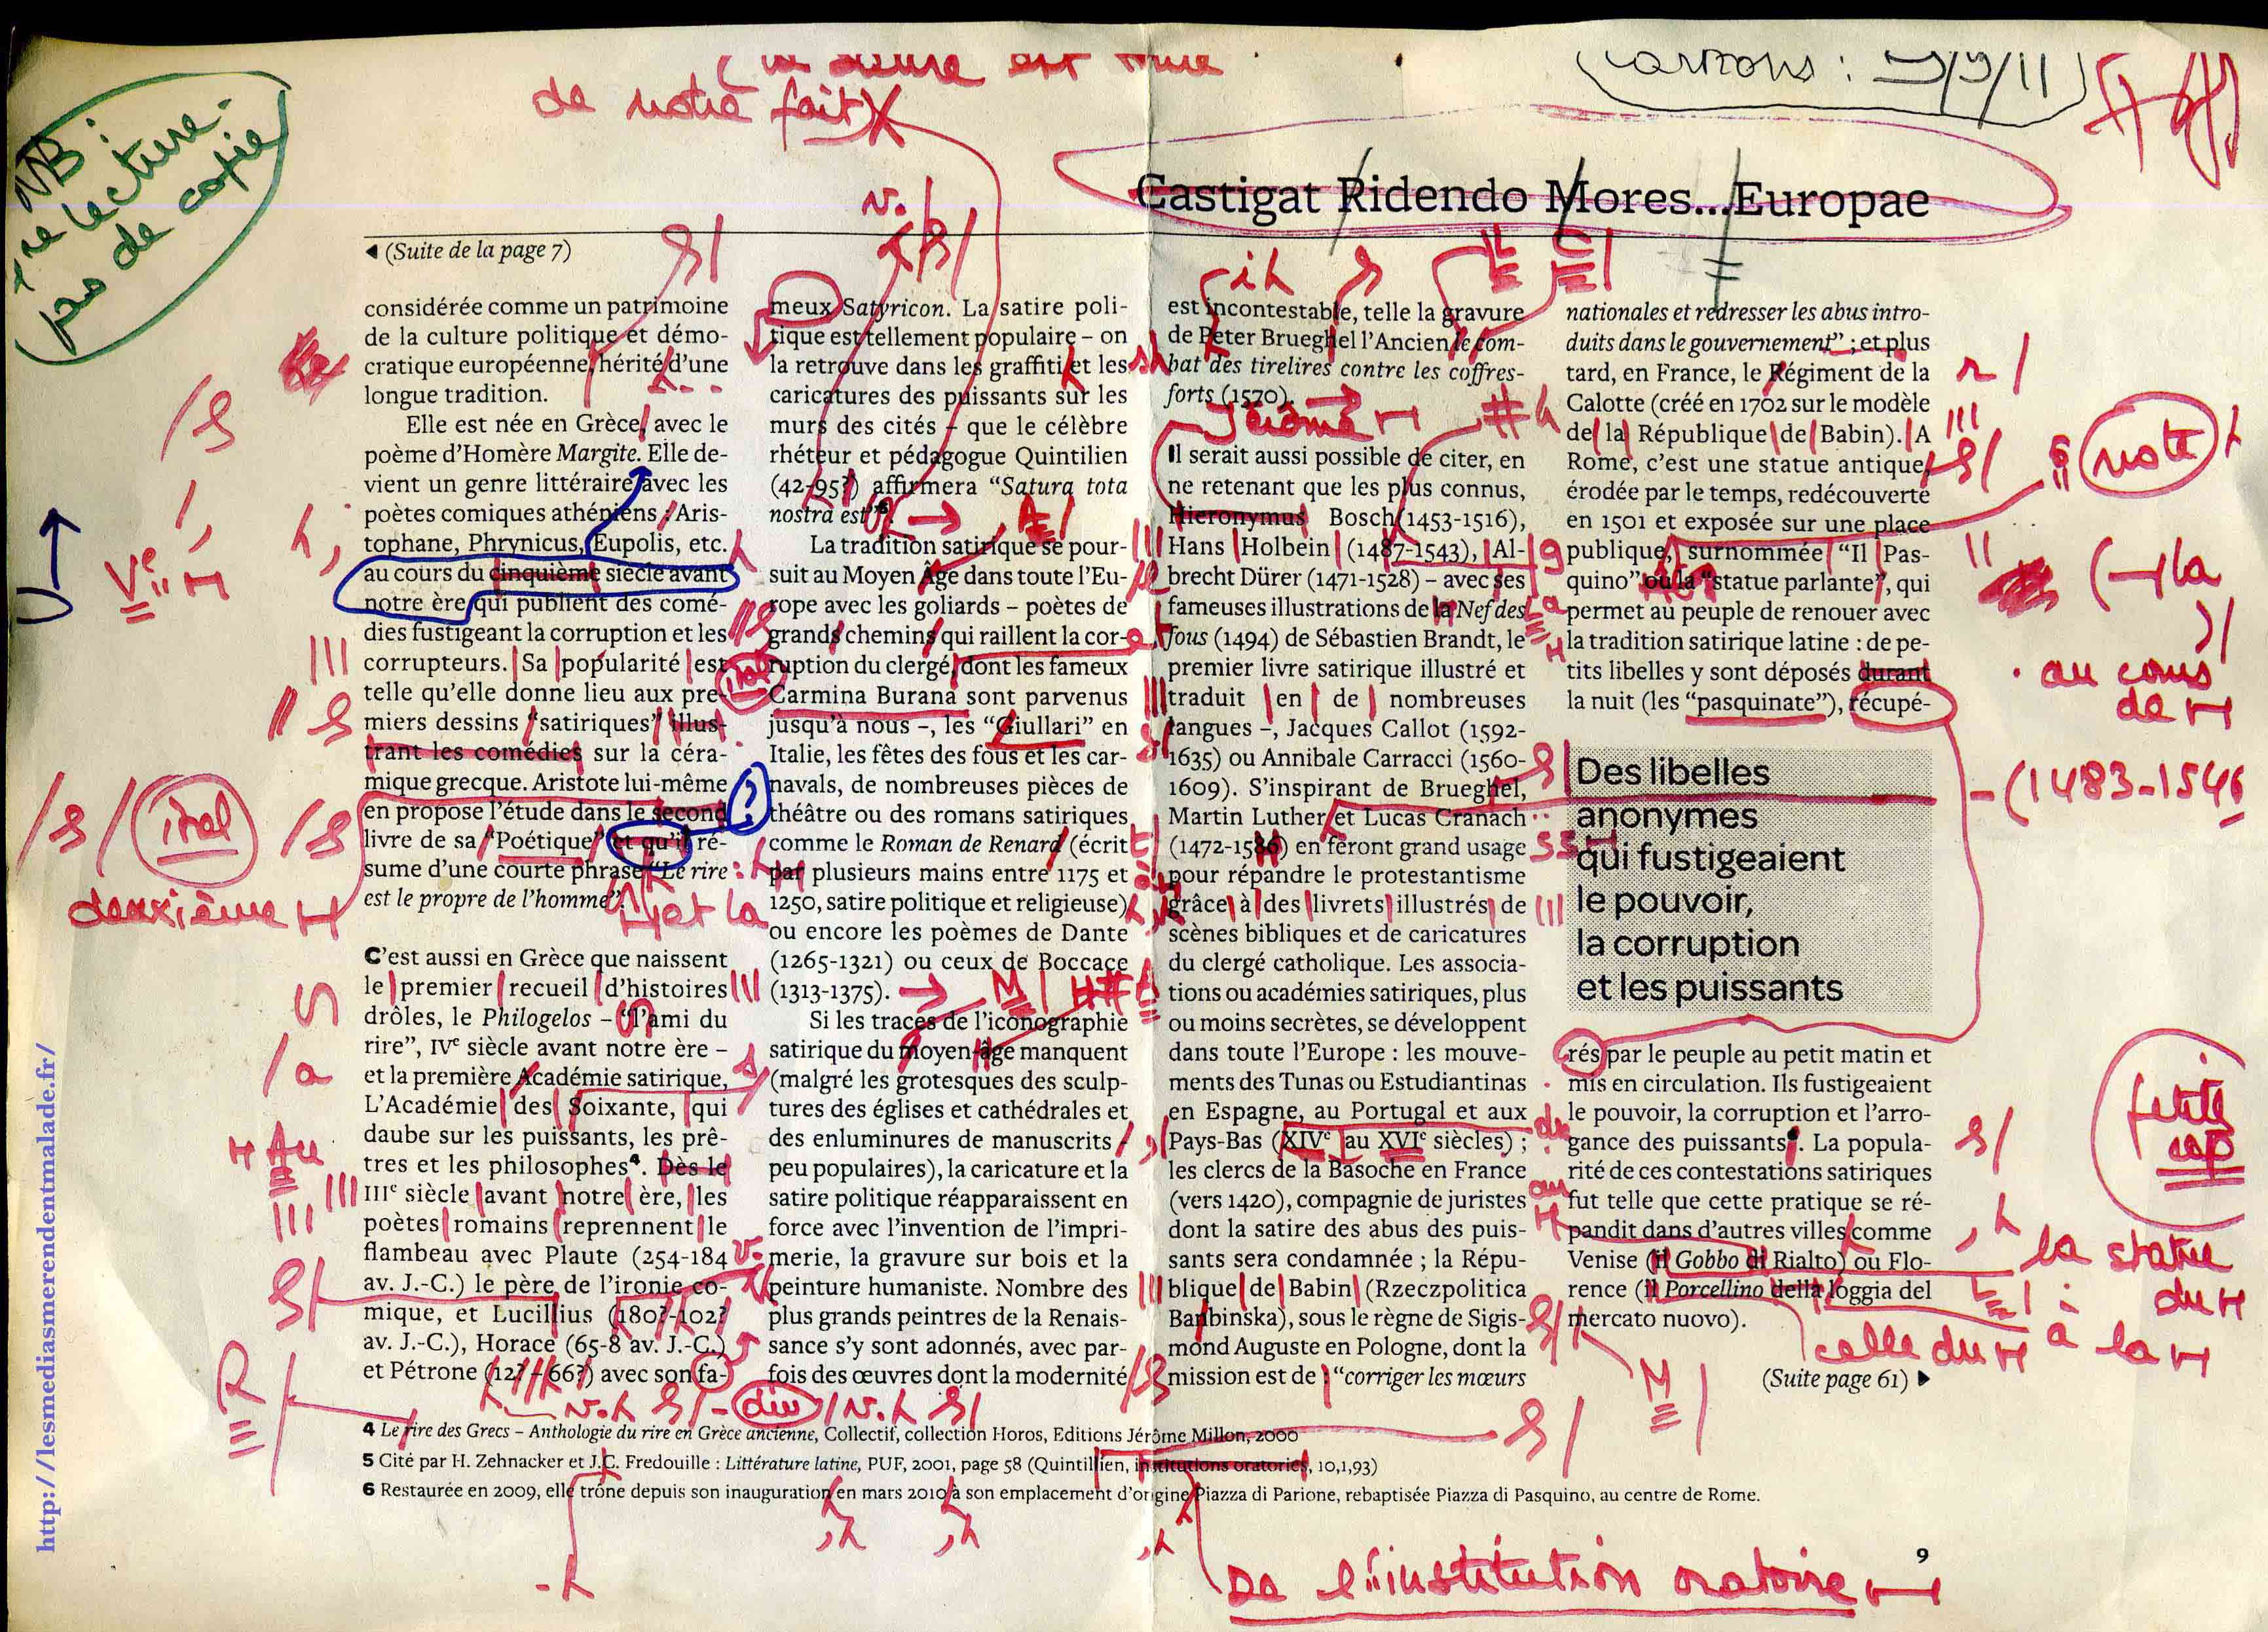 de notre fait)
cartons :
NB :
relecture
pas de copie
Castigat Ridendo Mores...Europae
◀ (Suite de la page 7)
considérée comme un patrimoine
de la culture politique et démo-
cratique européenne, hérité d'une
longue tradition.
Elle est née en Grèce, avec le
poème d'Homère Margite. Elle de-
vient un genre littéraire avec les
poètes comiques athéniens : Aris-
tophane, Phrynicus, Eupolis, etc.
au cours du cinquième siècle avant
notre ère qui publient des comé-
dies fustigeant la corruption et les
corrupteurs. Sa popularité est
telle qu'elle donne lieu aux pre-
miers dessins "satiriques" illus-
trant les comédies sur la céra-
mique grecque. Aristote lui-même
en propose l'étude dans le second
livre de sa "Poétique" et qu'il ré-
sume d'une courte phrase "Le rire
est le propre de l'homme".
C'est aussi en Grèce que naissent
le premier recueil d'histoires
drôles, le Philogelos – "l'ami du
rire", IVe siècle avant notre ère –
et la première Académie satirique,
L'Académie des Soixante, qui
daube sur les puissants, les prê-
tres et les philosophes4. Dès le
IIIe siècle avant notre ère, les
poètes romains reprennent le
flambeau avec Plaute (254-184
av. J.-C.) le père de l'ironie co-
mique, et Lucillius (180?-102?
av. J.-C.), Horace (65-8 av. J.-C.)
et Pétrone (12?-66?) avec son fa-
meux Satyricon. La satire poli-
tique est tellement populaire – on
la retrouve dans les graffiti et les
caricatures des puissants sur les
murs des cités – que le célèbre
rhéteur et pédagogue Quintilien
(42-95?) affirmera "Satura tota
nostra est"5.
La tradition satirique se pour-
suit au Moyen Âge dans toute l'Eu-
rope avec les goliards – poètes de
grands chemins qui raillent la cor-
ruption du clergé, dont les fameux
Carmina Burana sont parvenus
jusqu'à nous –, les "Giullari" en
Italie, les fêtes des fous et les car-
navals, de nombreuses pièces de
théâtre ou des romans satiriques
comme le Roman de Renard (écrit
par plusieurs mains entre 1175 et
1250, satire politique et religieuse)
ou encore les poèmes de Dante
(1265-1321) ou ceux de Boccace
(1313-1375).
Si les traces de l'iconographie
satirique du moyen-âge manquent
(malgré les grotesques des sculp-
tures des églises et cathédrales et
des enluminures de manuscrits
peu populaires), la caricature et la
satire politique réapparaissent en
force avec l'invention de l'impri-
merie, la gravure sur bois et la
peinture humaniste. Nombre des
plus grands peintres de la Renais-
sance s'y sont adonnés, avec par-
fois des œuvres dont la modernité
est incontestable, telle la gravure
de Peter Brueghel l'Ancien le com-
bat des tirelires contre les coffres-
forts (1570).
Jérôme
Il serait aussi possible de citer, en
ne retenant que les plus connus,
Hieronymus Bosch (1453-1516),
Hans Holbein (1487-1543), Al-
brecht Dürer (1471-1528) – avec ses
fameuses illustrations de la Nef des
fous (1494) de Sébastien Brandt, le
premier livre satirique illustré et
traduit en de nombreuses
langues –, Jacques Callot (1592-
1635) ou Annibale Carracci (1560-
1609). S'inspirant de Brueghel,
Martin Luther et Lucas Cranach
(1472-1586) en feront grand usage
pour répandre le protestantisme
grâce à des livrets illustrés de
scènes bibliques et de caricatures
du clergé catholique. Les associa-
tions ou académies satiriques, plus
ou moins secrètes, se développent
dans toute l'Europe : les mouve-
ments des Tunas ou Estudiantinas
en Espagne, au Portugal et aux
Pays-Bas (XIVe au XVIe siècles) ;
les clercs de la Basoche en France
(vers 1420), compagnie de juristes
dont la satire des abus des puis-
sants sera condamnée ; la Répu-
blique de Babin (Rzeczpolitica
Banbinska), sous le règne de Sigis-
mond Auguste en Pologne, dont la
mission est de "corriger les mœurs
nationales et redresser les abus intro-
duits dans le gouvernement" ; et plus
tard, en France, le Régiment de la
Calotte (créé en 1702 sur le modèle
de la République de Babin). A
Rome, c'est une statue antique,
érodée par le temps, redécouverte
en 1501 et exposée sur une place
publique, surnommée "Il Pas-
quino" ou la "statue parlante", qui
permet au peuple de renouer avec
la tradition satirique latine : de pe-
tits libelles y sont déposés durant
la nuit (les "pasquinate"), récupé-
Des libelles
anonymes
qui fustigeaient
le pouvoir,
la corruption
et les puissants
rés par le peuple au petit matin et
mis en circulation. Ils fustigeaient
le pouvoir, la corruption et l'arro-
gance des puissants6. La popula-
rité de ces contestations satiriques
fut telle que cette pratique se ré-
pandit dans d'autres villes comme
Venise (il Gobbo di Rialto) ou Flo-
rence (il Porcellino della loggia del
mercato nuovo).
(Suite page 61) ▶
note
(la
au cours
de
(1483-1546
petite
cap
la statue
du
celle du
à la
ital
deuxième
et la
Au
4 Le rire des Grecs – Anthologie du rire en Grèce ancienne, Collectif, collection Horos, Editions Jérôme Millon, 2000
5 Cité par H. Zehnacker et J.C. Fredouille : Littérature latine, PUF, 2001, page 58 (Quintillien, institutions oratories, 10,1,93)
6 Restaurée en 2009, elle trône depuis son inauguration en mars 2010 à son emplacement d'origine Piazza di Parione, rebaptisée Piazza di Pasquino, au centre de Rome.
9
De l'institution oratoire
http://lesmediasmerendentmalade.fr/